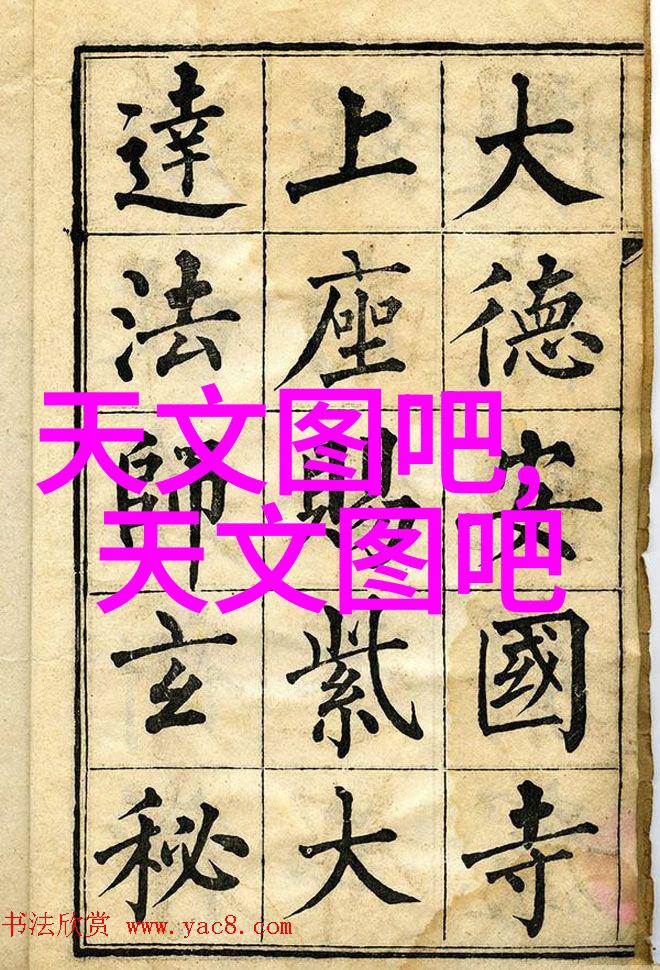 大德安國寺
上座賜紫大
達法師玄秘
天文图吧,
天文图吧
书法欣赏 www.yac8.com